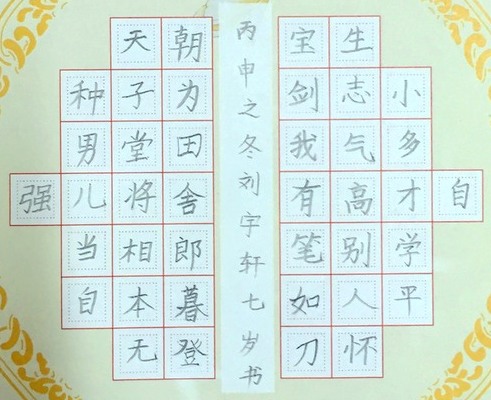 自
小多才学平
生志气高别人怀
宝剑我有笔如刀
朝为田舍郎暮登
天子堂将相本无
种男儿当自
强
丙申之冬刘宇轩七岁书